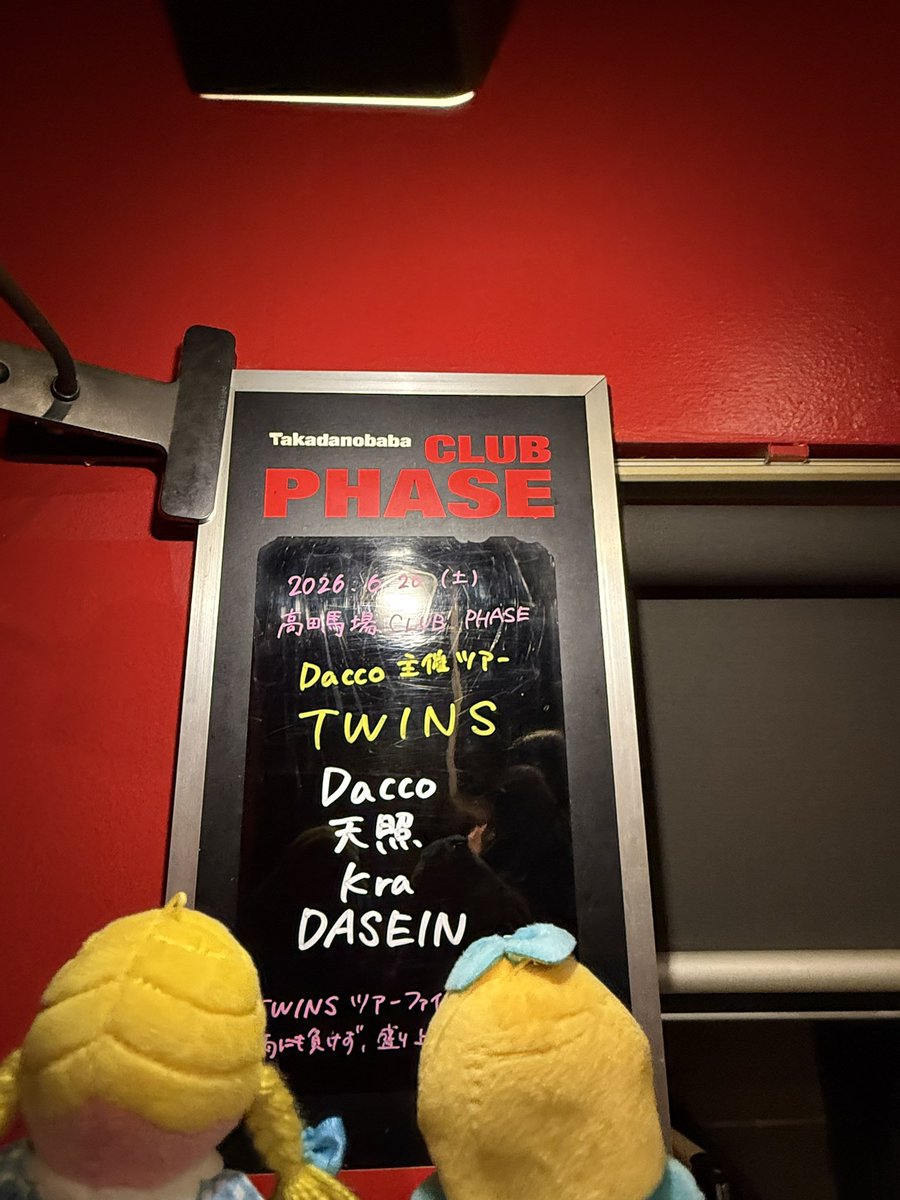 Takadanobaba CLUB
PHASE
2026.6.20 (土)
高田馬場 CLUB PHASE
Dacco 主催ツアー
TWINS
Dacco
天照
Kra
DASEIN
TWINS ツアーファイ
雨にも負けず、盛り上